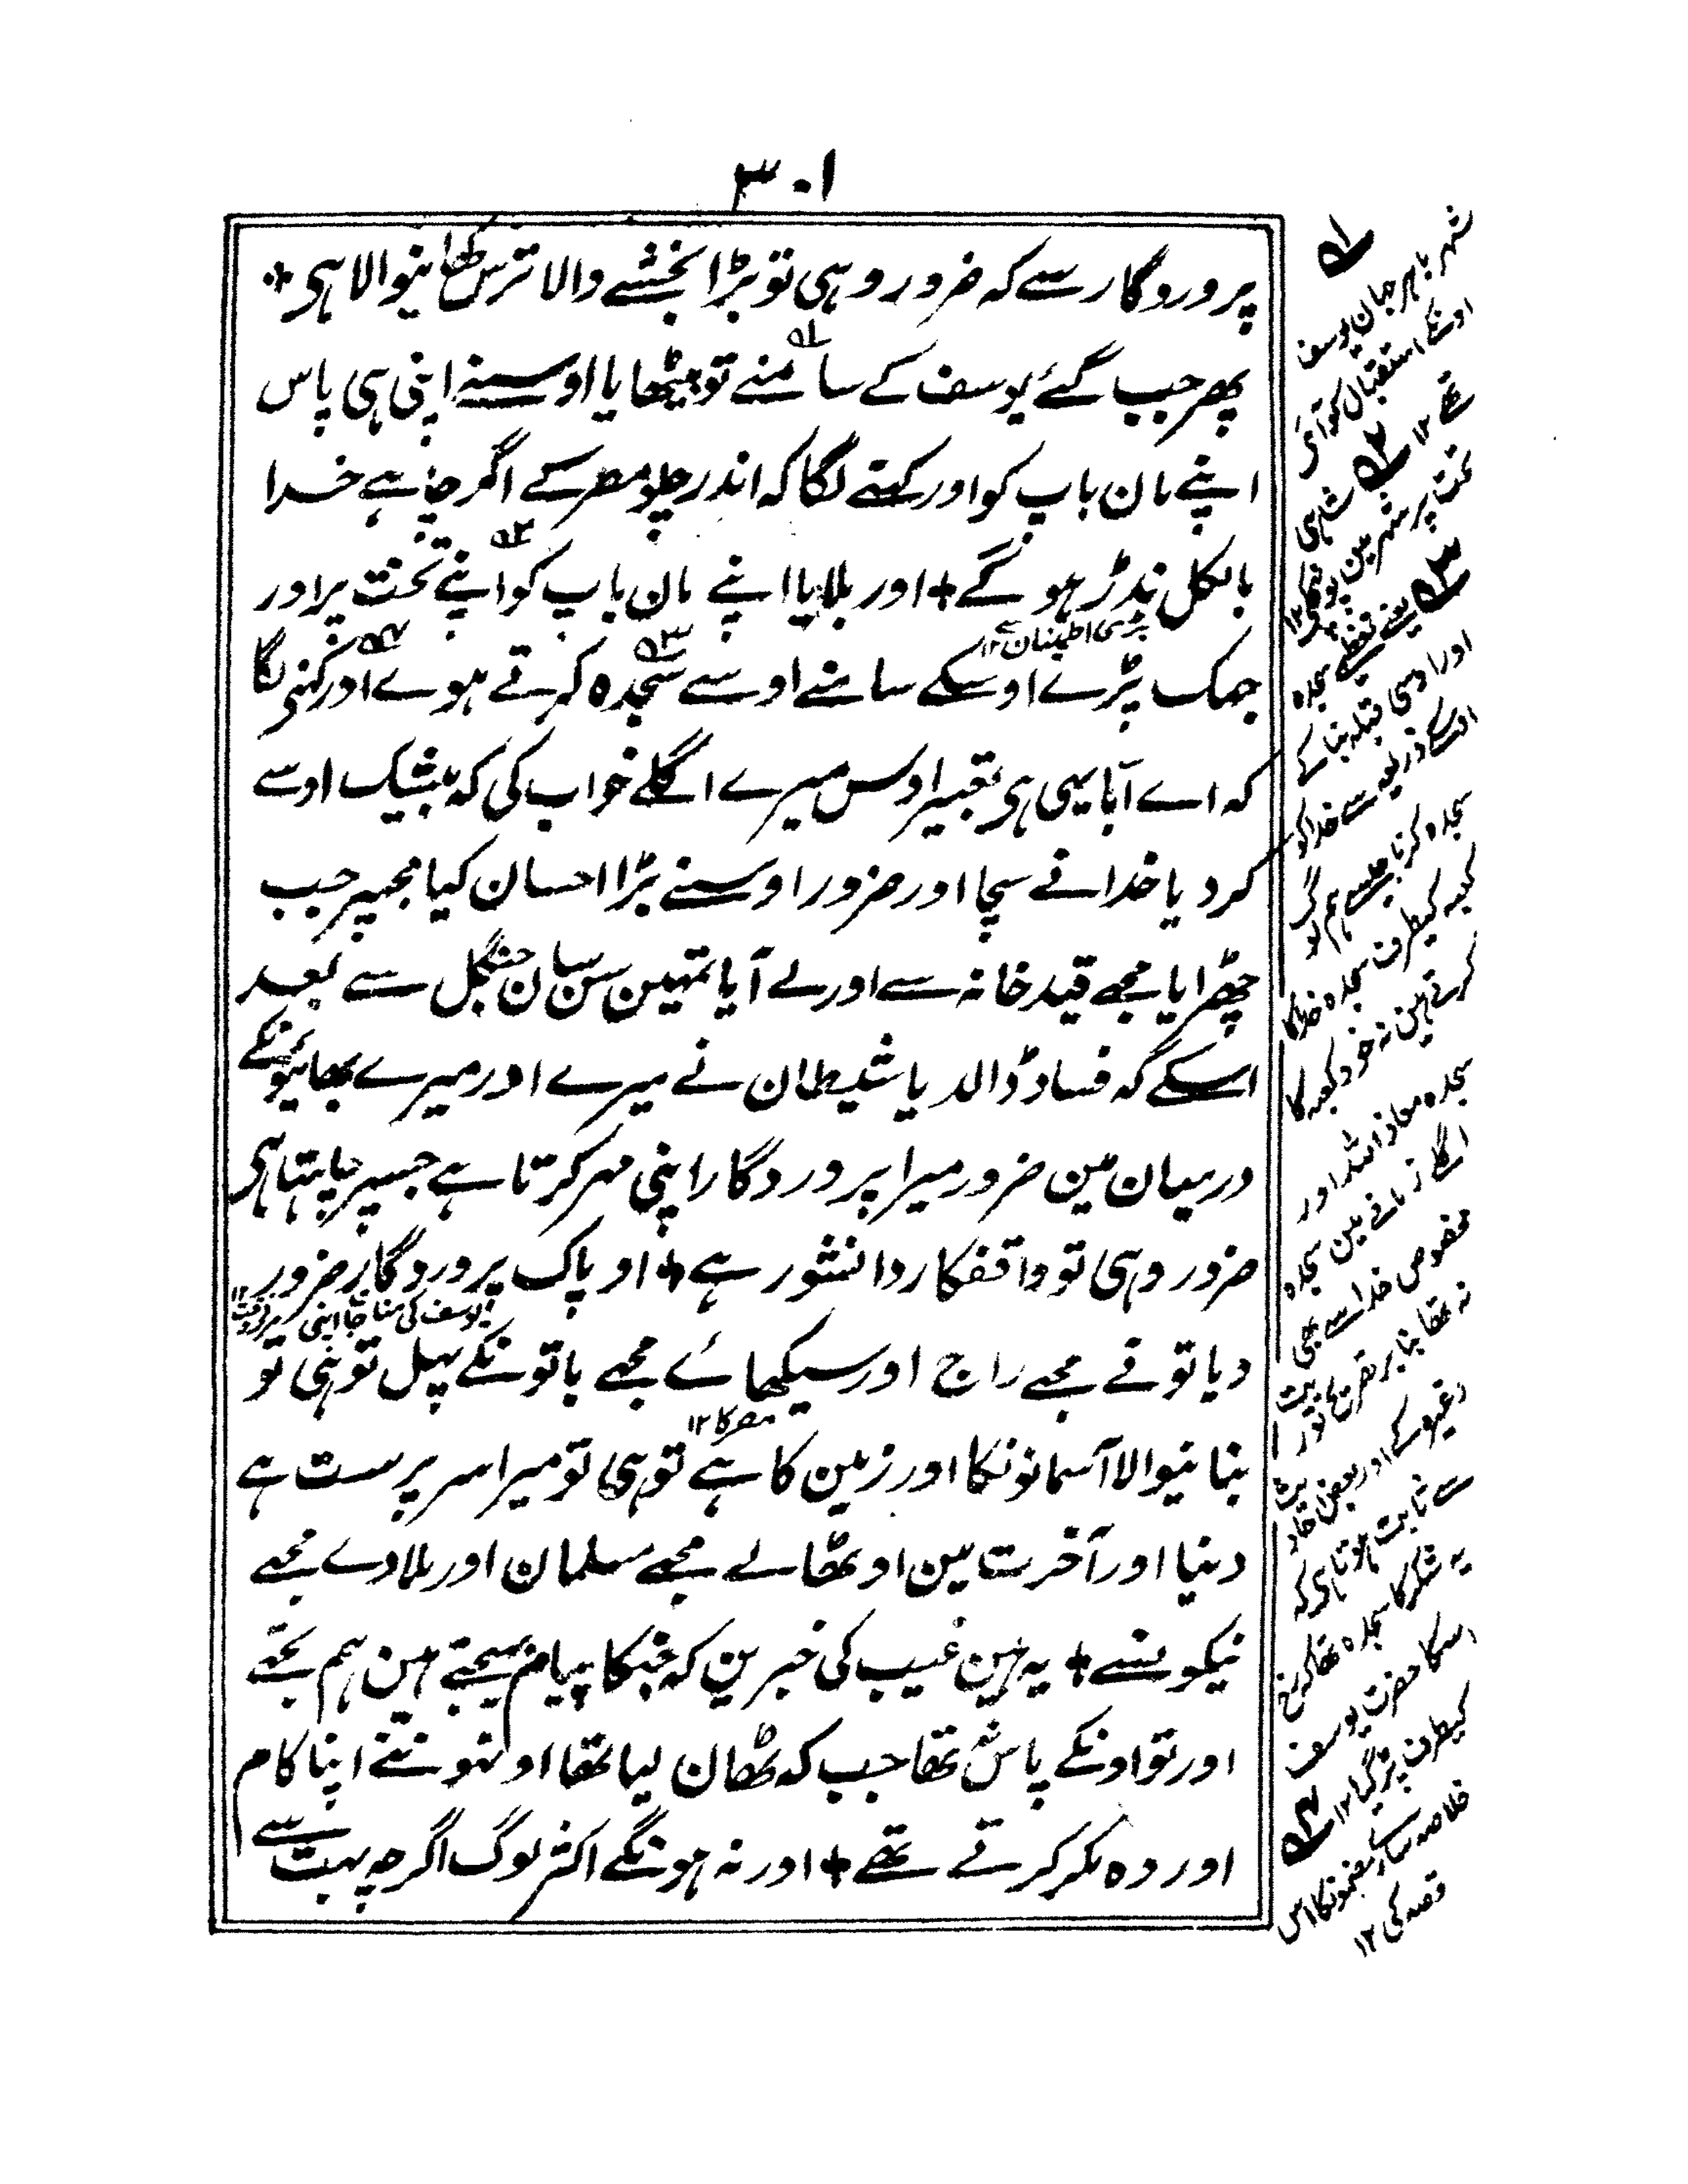 ۳۰۱
پروردگار سے کہ ضرور وہی تو بڑا بخشنے والا ترس کھانیوالا ہی +
پھر جب گئے یوسف کے سامنے تو بیٹھایا اوسنے اپنی ہی پاس
اپنے مان باپ کو اور کہنے لگا کہ اندر چلو مصر کے اگر چاہے خدا
بالکل نڈر ہو گے + اور بلایا اپنے مان باپ کو اپنے تخت پر اور
بڑی اطمینان سے ۱۲
جھک پڑے اوسکے سامنے اوسے سجدہ کرتے ہوے اور کہنی لگا
کہ اے آبا یہی ہی تعبیر اوس میرے اگلے خواب کی کہ بیشک اوسے
کردیا خدا نے سچا اور ضرور اوسنے بڑا احسان کیا مجھپر جب
چھڑایا مجھے قیدخانہ سے اور لے آیا تمہین سنسان جنگل سے بعد
اسکے کہ فساد ڈالدیا شیطان نے میرے اور میرے بھائیونکے
درمیان مین ضرور میرا پروردگار اپنی مہر کرتا ہے جسپر چاہتا ہی
ضرور وہی تو واقفکار دانشور ہے + او پاک پروردگار ضرور
دیا تو نے مجھے راج اور سیکھائے مجھے باتونکے پہل توہی تو
مصر کا ۱۲
بنانیوالا آسمانونکا اور زمین کا ہے توہی تو میرا سرپرست ہے
دنیا اور آخرت مین اوٹھالے مجھے مسلمان اور ملادے مجھے
نیکونسے + یہ ہین غیب کی خبرین کہ جنکا پیام بھیجتے ہین ہم تجھے
اور تو اونکے پاس تھا جب کہ ٹھان لیا تھا اونہونے اپنا کام
اور وہ مکر کرتے تھے + اور نہ ہونگے اکثر لوگ اگرچہ بہت سے
شہر باہر جہان یوسف
اوسکے استقبال کو آئی
تھے ۱۲
تخت پر شہر مین
اور اوسی قبلہ بنا کے
اوسکے ذریعہ سے خدا کو
سجدہ کرنا جیسے ہم لوگ
کعبہ کیطرف سجدہ خدا کا
کرتے ہین نہ خود کعبہ کا
سجدہ معاذاللہ اور
اگلے زمانے مین سجدہ
مخصوص خدا سے بھی
نہ تھا
سے ثابت ہوتا ہی کہ
یہ شکر کا سجدہ تھا
اسکا حضرت یوسف
کیطرف پڑگیا ۱۲
خلاصہ سارے مضمونکا اس
قصہ کی ۱۲